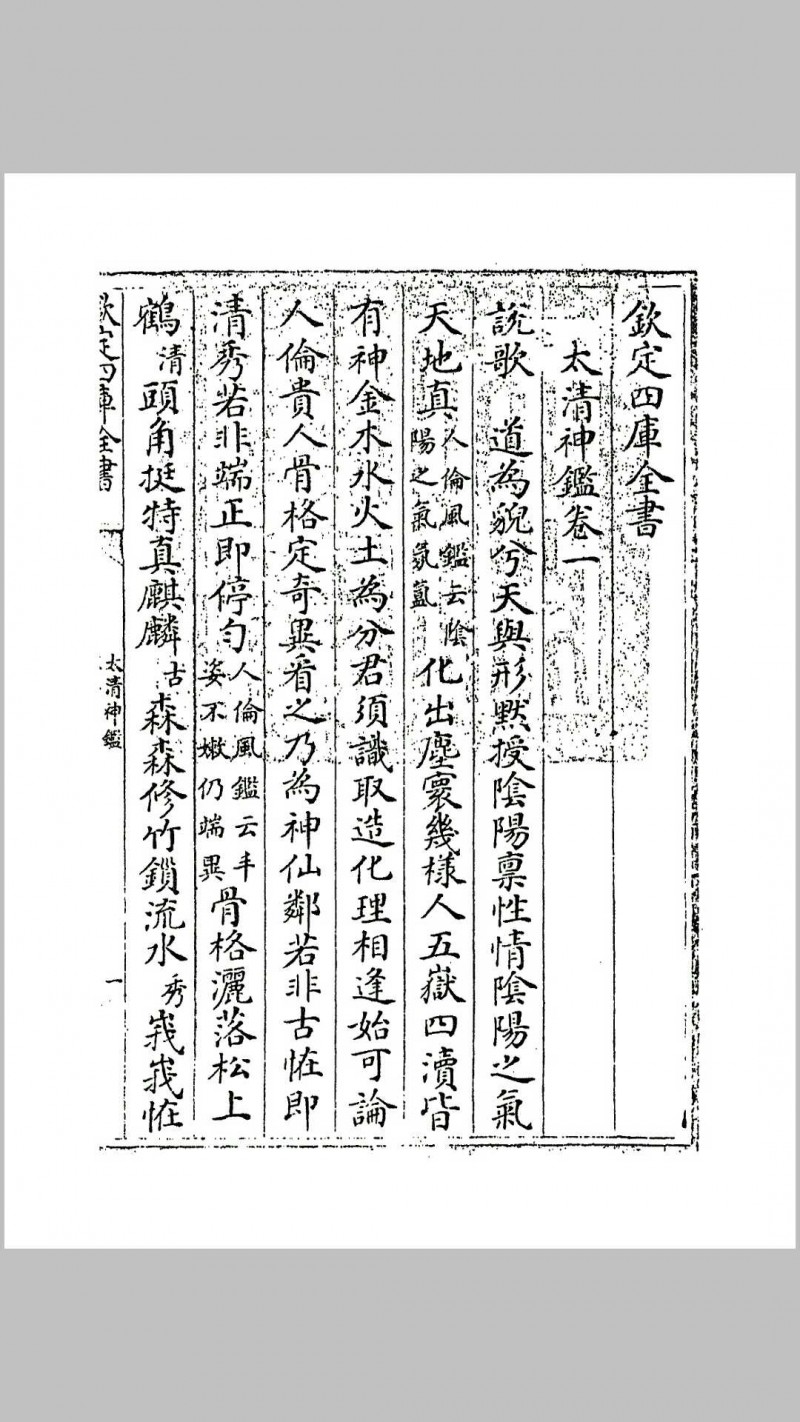 欽定四庫全書
太清神鑑卷一
說歌 道為貌兮天與形默授陰陽稟性情陰陽之氣
天地真人倫風鑑云陰陽之氣氤氳化出塵寰幾樣人五嶽四瀆皆
有神金木水火土為分君須識取造化理相逢始可論
人倫貴人骨格定奇異看之乃為神仙鄰若非古怪即
清秀若非端正即停勻人倫風鑑云丰姿不嫩仍端異骨格灑落松上
鶴清頭角挺特真麒麟古森森修竹鎖流水秀峩峩怪
欽定四庫全書
太清神鑑
一